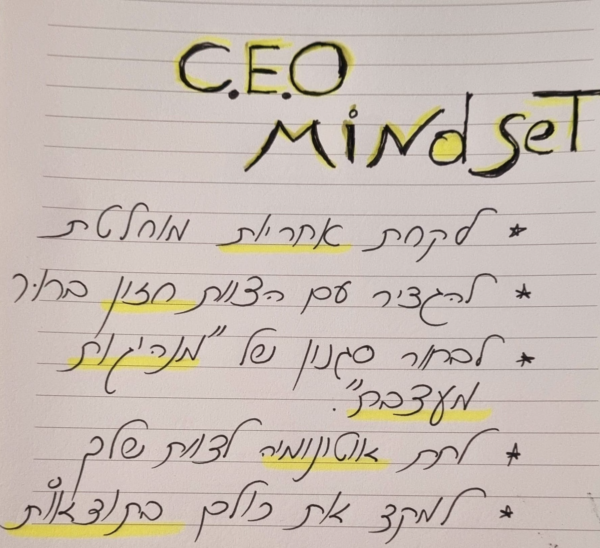 C.E.O
Mindset
* לקחת אחריות מוחלטת
* להגדיר עם הצוות חזון ברור
* לבחור סגנון של "מנהיגות
מעצבת".
* לתת אוטונומיה לצוות שלך
* למקד את כולם בתוצאות